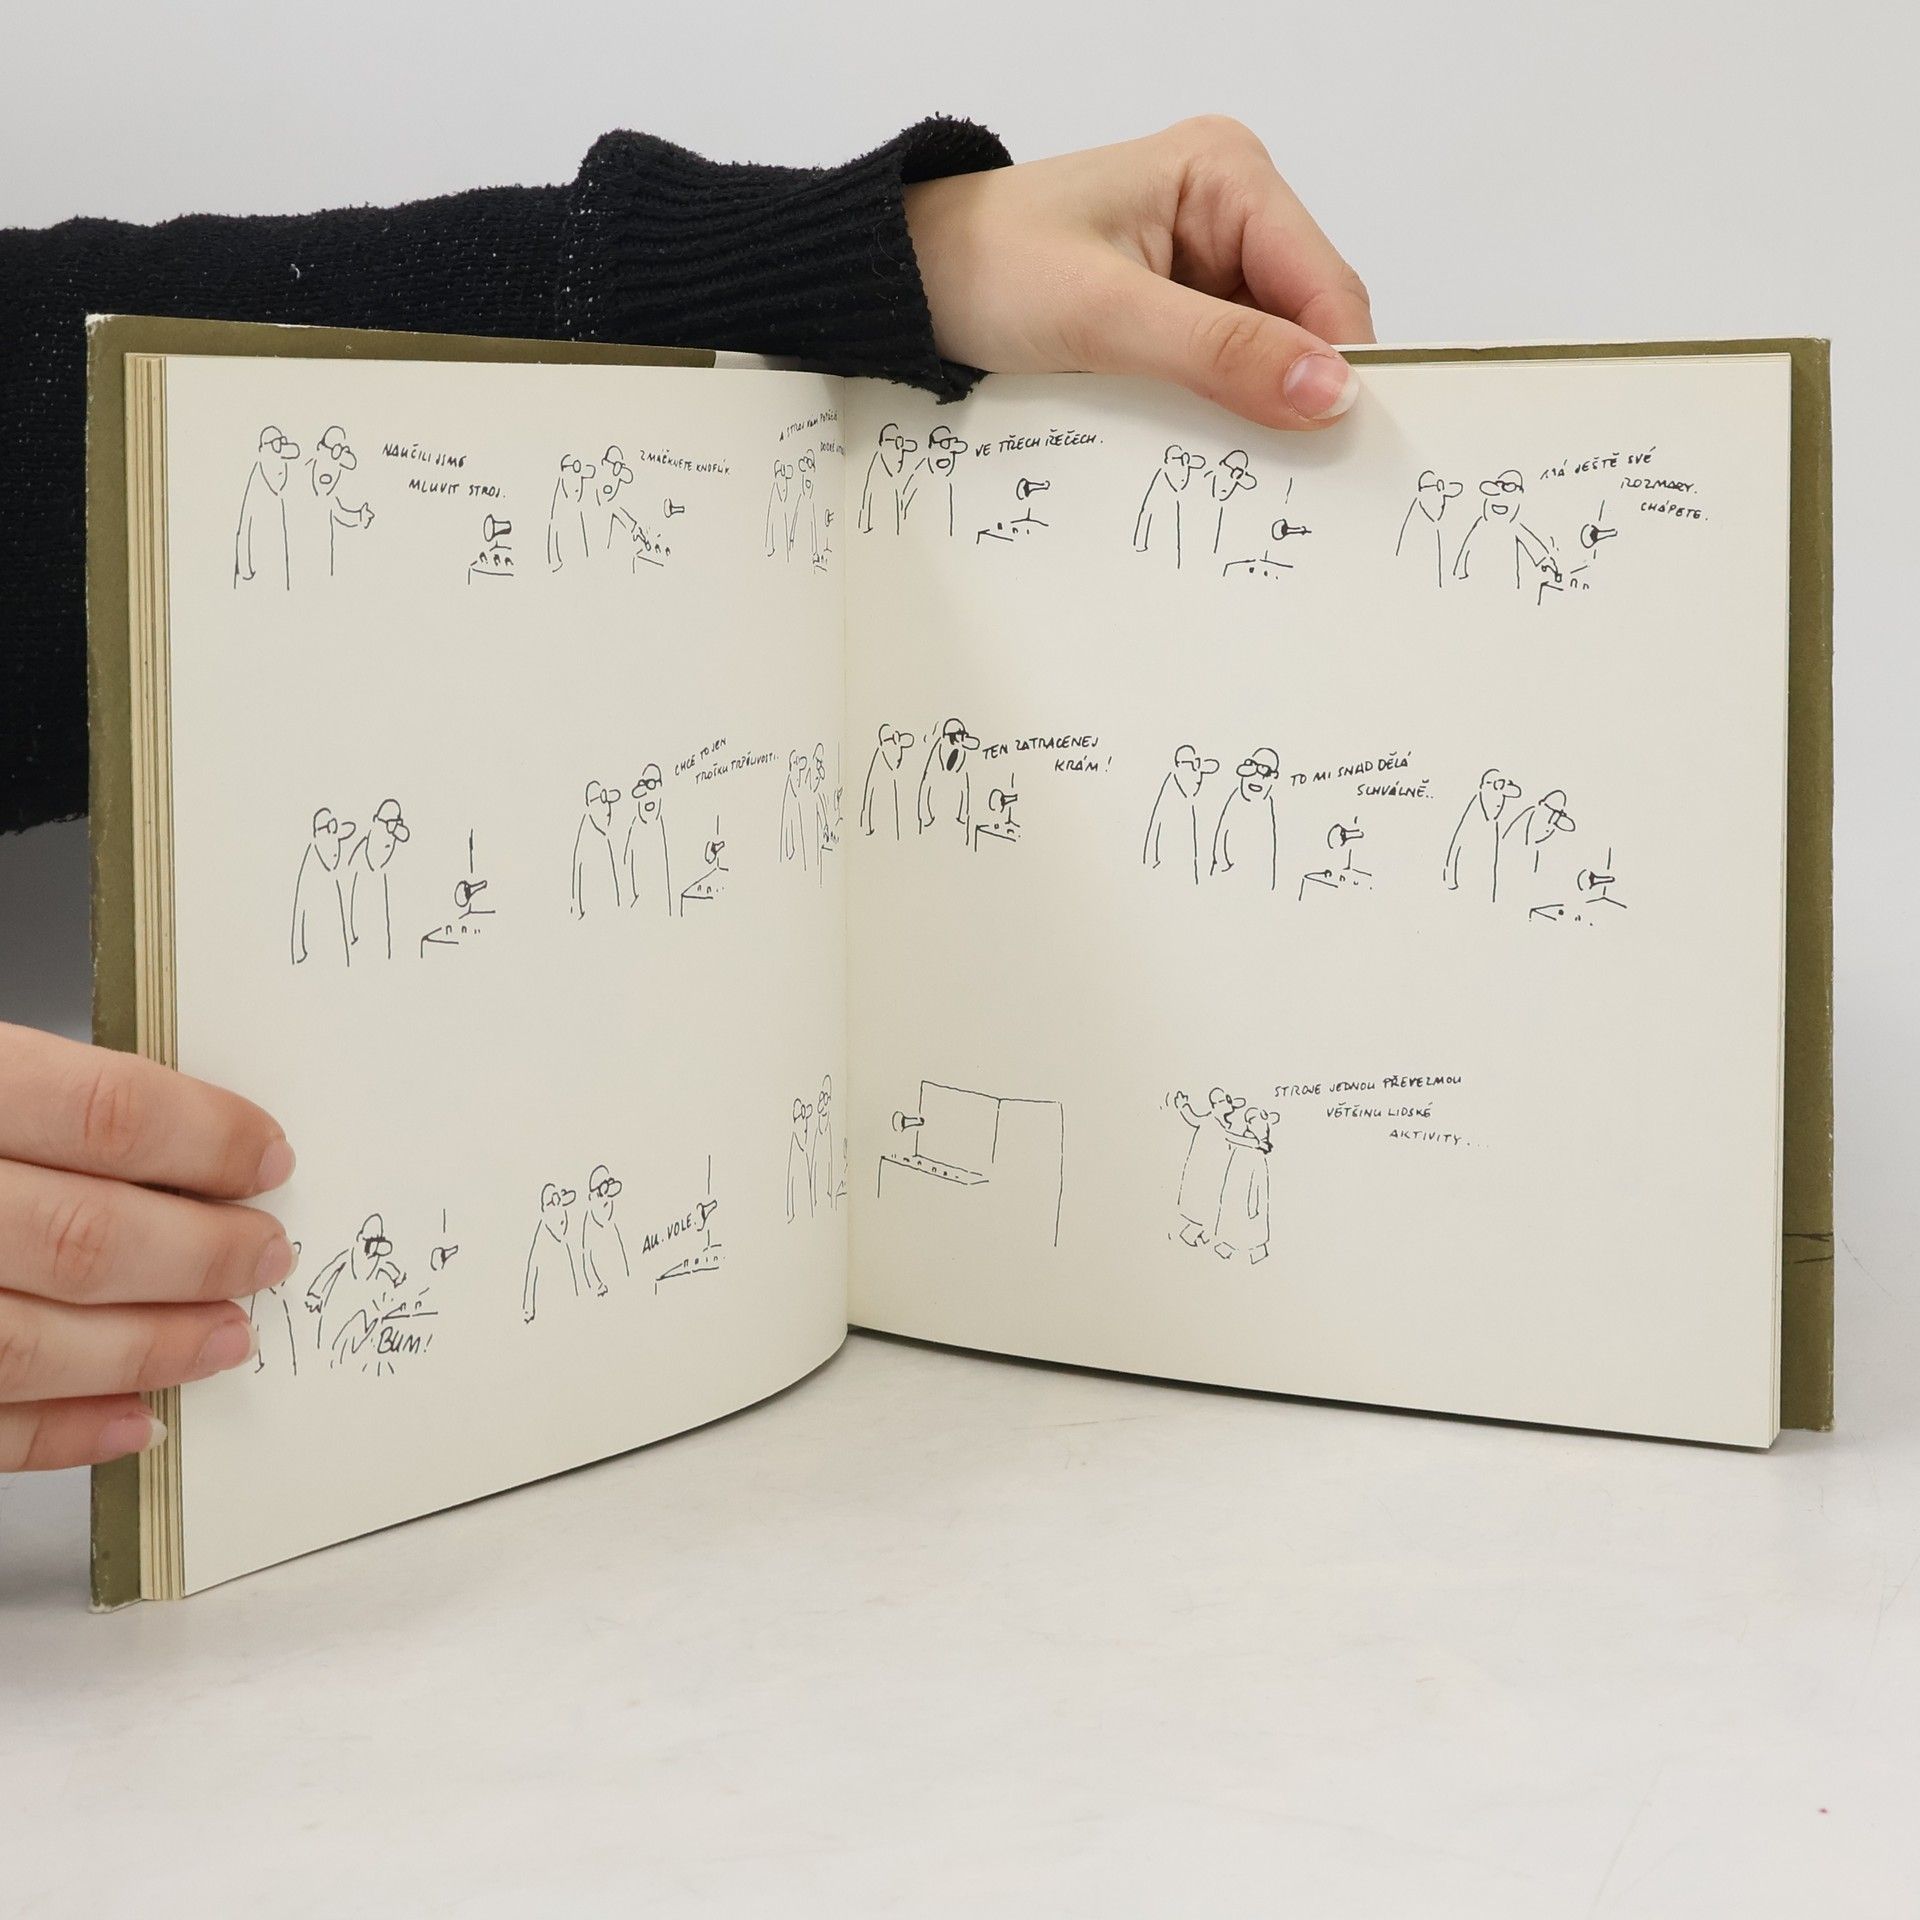 NAUČILI JSME
MLUVIT STROJ.
ZMÁČKNETE KNOFLÍK
A STROJ NÁM POPŘEJE
DOBRÉ
VE TŘECH ŘEČECH.
MÁ JEŠTĚ SVÉ
ROZMARY.
CHÁPETE.
CHCE TO JEN
TROŠKU TRPĚLIVOSTI.
TEN ZATRACENEJ
KRÁM!
TO MI SNAD DĚLÁ
SCHVÁLNĚ..
BUM!
AU. VOLE.
STROJE JEDNOU PŘEVEZMOU
VĚTŠINU LIDSKÉ
AKTIVITY...